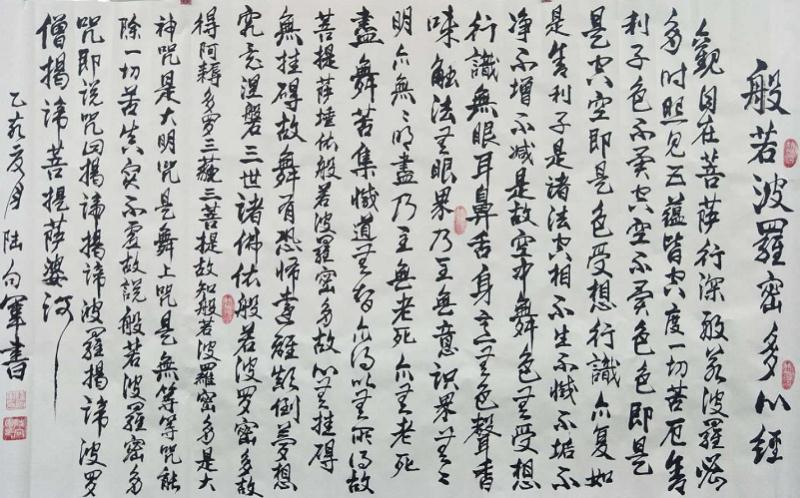 般若波羅密多心經
觀自在菩薩行深般若波羅密
多時照見五蘊皆空度一切苦厄舍
利子色不異空空不異色色即是
空空即是色受想行識亦复如
是舍利子是諸法空相不生不滅不垢不
净不增不减是故空中無色無受想
行識無眼耳鼻舌身意無色聲香
味触法無眼界乃至無意识界無無
明亦無無明盡乃至無老死亦無老死
盡無苦集滅道無智亦得以無所得故
菩提薩埵依般若波羅密多故心無挂碍
無挂碍故無有恐怖遠離顛倒夢想
究竟涅磐三世诸佛依般若波罗密多故
得阿耨多罗三藐三菩提故知般若波羅密多是大
神咒是大明咒是無上咒是無等等咒能
除一切苦真实不虚故說般若波羅密多
咒即说咒曰揭諦揭諦波羅揭諦波罗
僧揭諦菩提薩婆訶
乙亥夏月陆向軍書